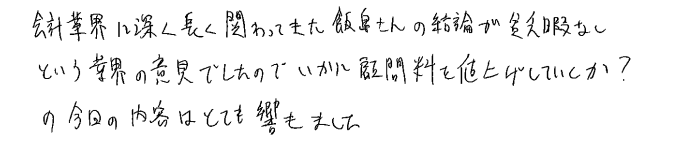 会計業界に深く長く関わってきた飯島さんの結論が貧乏暇なし
という業界の意見でしたのでいかに顧問料を値上げしていくか?
の今回の内容はとても響きました